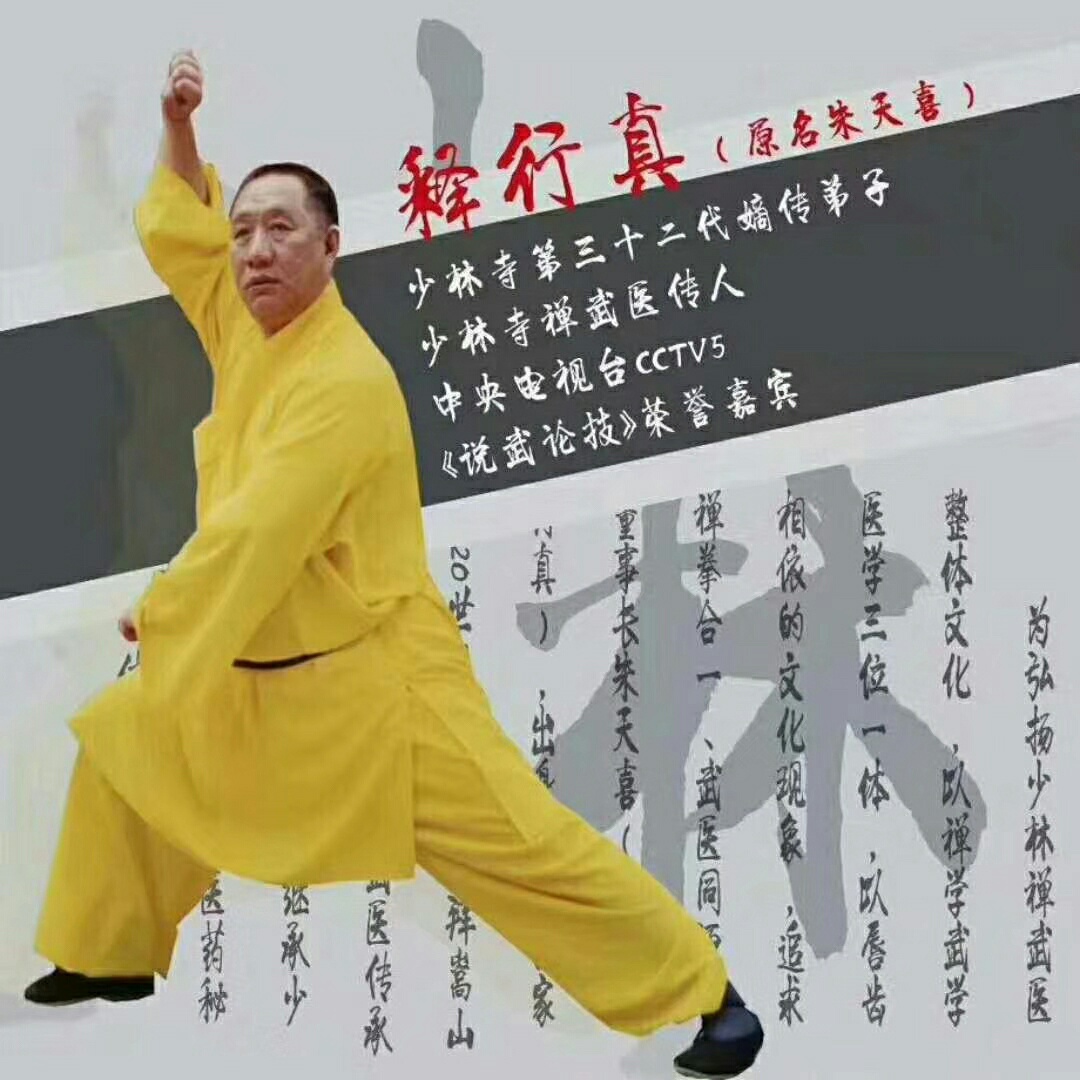 释行真（原名朱天喜）
少林寺第三十二代嫡传弟子
少林寺禅武医传人
中央电视台CCTV5
《说武论技》荣誉嘉宾
为弘扬少林禅武医
整体文化,以禅学武学
医学三位一体,以唇齿
相依的文化现象,追求
禅拳合一、武医同
事长朱天喜(
真),出 家
20世 嵩山
武医传承
继承少
医药秘
林